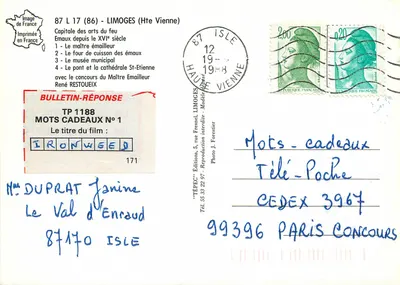 Image
de France
Imprimée
en France
87 L 17 (86) - LIMOGES (Hte Vienne)
Capitale des arts du feu
Emaux depuis le XVIe siècle
1 - Le maître émailleur
2 - Le four de cuisson des émaux
3 - Le musée municipal
4 - Le pont et la cathédrale St-Etienne
avec le concours du Maître Emailleur
René RESTOUEIX
BULLETIN-RÉPONSE
TP 1188
MOTS CADEAUX N° 1
Le titre du film :
IRONWEED
171
Mme DUPRAT Janine
Le Val d'Enraud
87170 ISLE
"TÉPEC" Éditions, 5, rue Ferussi, LIMOGES
Tél. 55 33 22 97 - Reproduction interdite - Modèle
Photo J. Foverier
87 ISLE
12
19 -
19
HAUTE VIENNE
2,00
0,20
Mots-cadeaux
Télé-Poche
CEDEX 3967
99396 PARIS CONCOURS